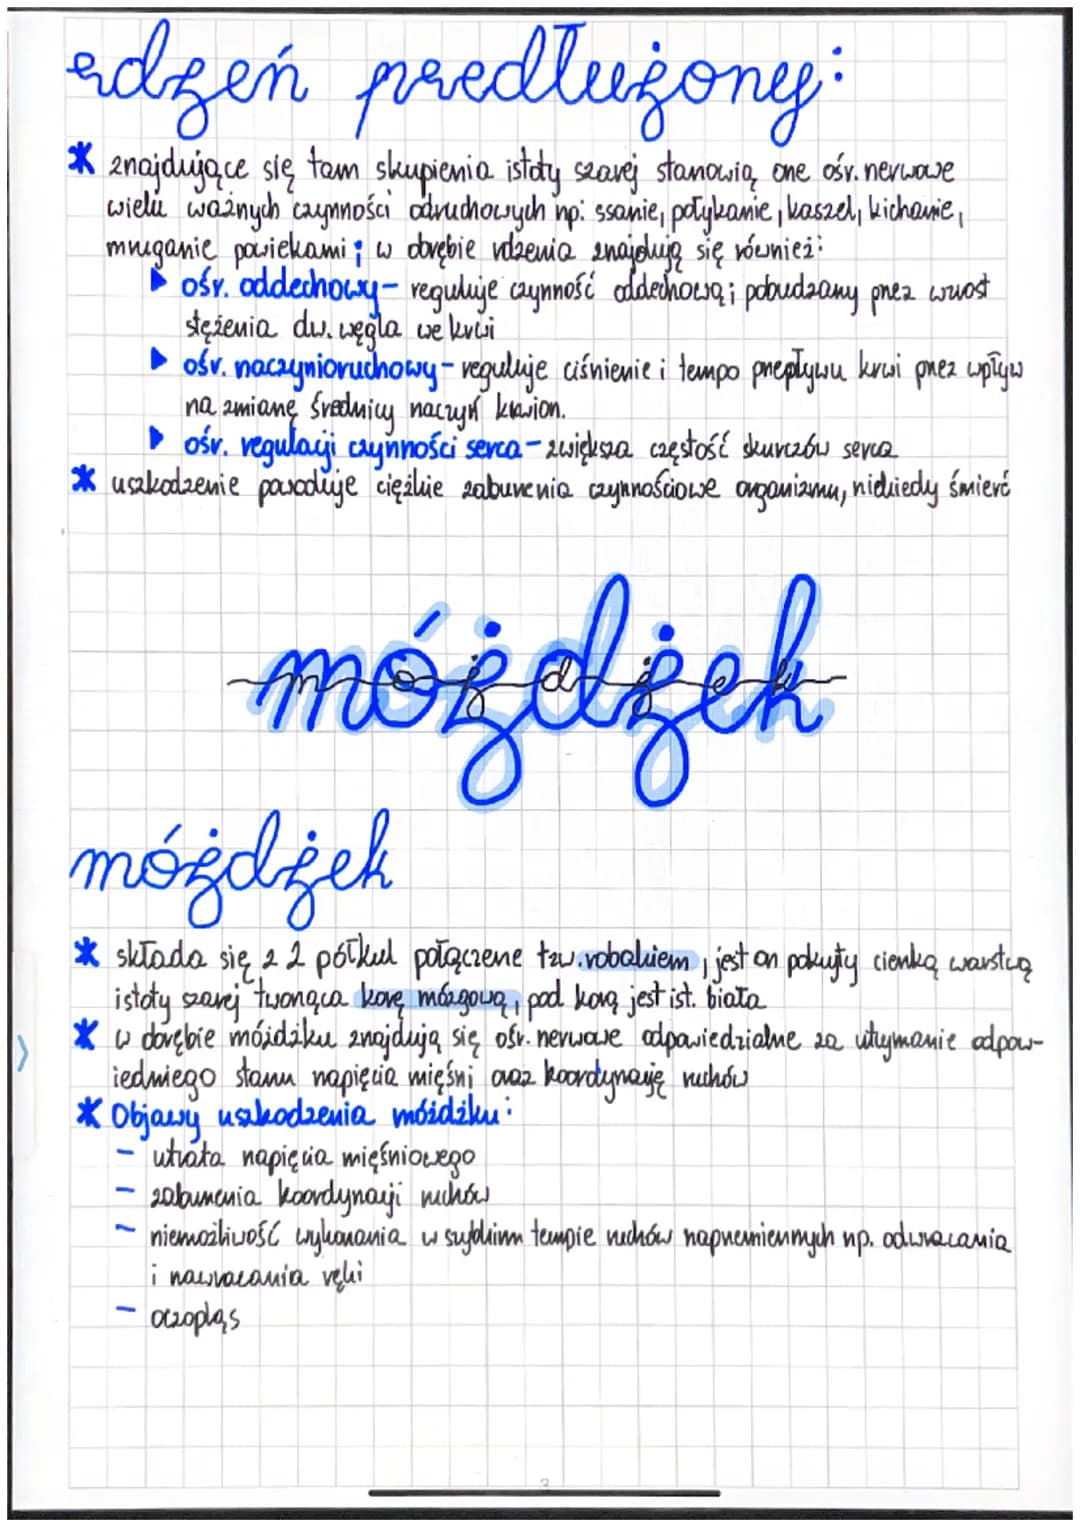 rdzeń przedłużony:
* znajdujące się tam skupienia istoty szarej stanowią one ośr. nerwowe
wielu ważnych czynności odruchowych np: ssanie, połykanie, kaszel, kichanie,
mruganie powiekami; w obrębie rdzenia znajdują się również:
▶ ośr. oddechowy - reguluje czynność oddechową; pobudzany przez wzrost
stężenia dw. węgla we krwi
▶ ośr. naczynioruchowy - reguluje ciśnienie i tempo przepływu krwi przez wpływ
na zmianę średnicy naczyń krwion.
▶ ośr. regulacji czynności serca - zwiększa częstość skurczów serca
* uszkodzenie powoduje ciężkie zaburzenia czynnościowe organizmu, niekiedy śmierć
móżdżek
móżdżek
* składa się z 2 półkul połączene tzw. robakiem, jest on pokryty cienką warstwą
istoty szarej tworząca korę mózgową, pod korą jest ist. biała
* w obrębie móżdżku znajdują się ośr. nerwowe odpowiedzialne za utrzymanie odpow-
iedniego stanu napięcia mięśni oraz koordynację ruchów
* Objawy uszkodzenia móżdżku:
- utrata napięcia mięśniowego
- zaburzenia koordynacji ruchów
- niemożliwość wykonania w szybkim tempie ruchów naprzemiennych np. odwracania
i nawracania ręki
- oczopląs